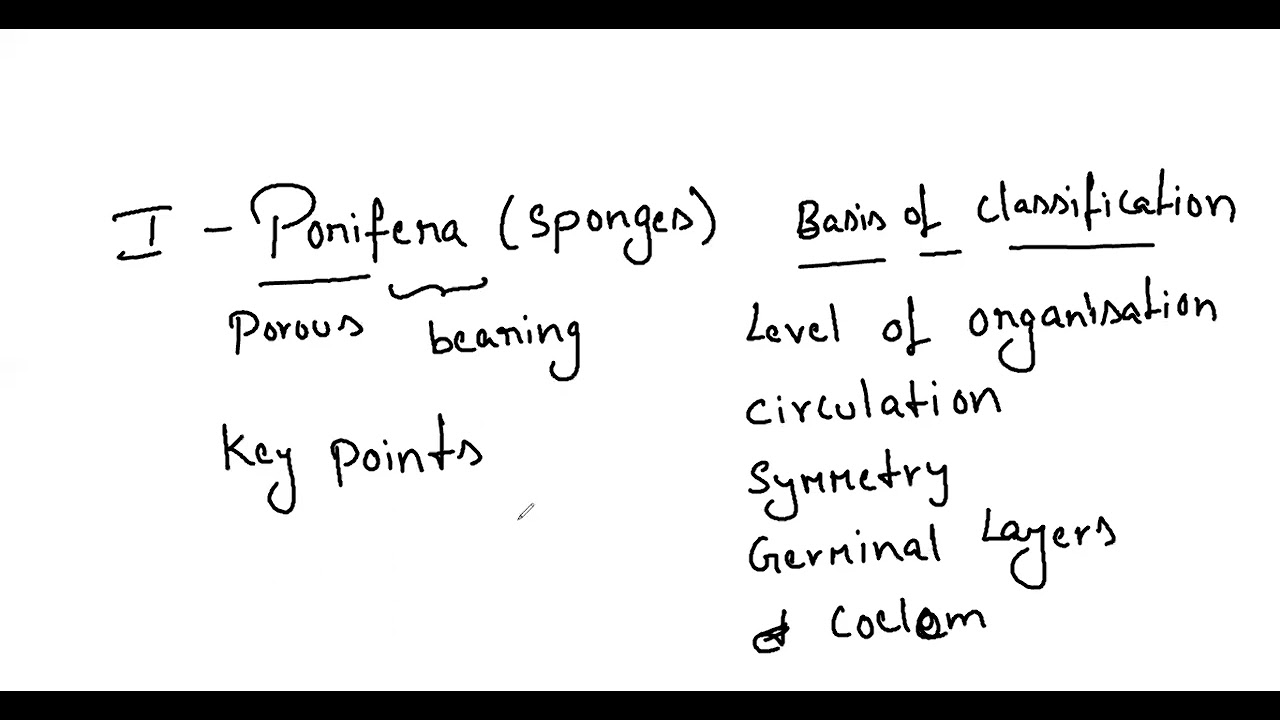 I - Porifera (Sponges)
Porous bearing
Key points
Basis of classification
Level of organisation
circulation
Symmetry
Germinal Layers
Coelom